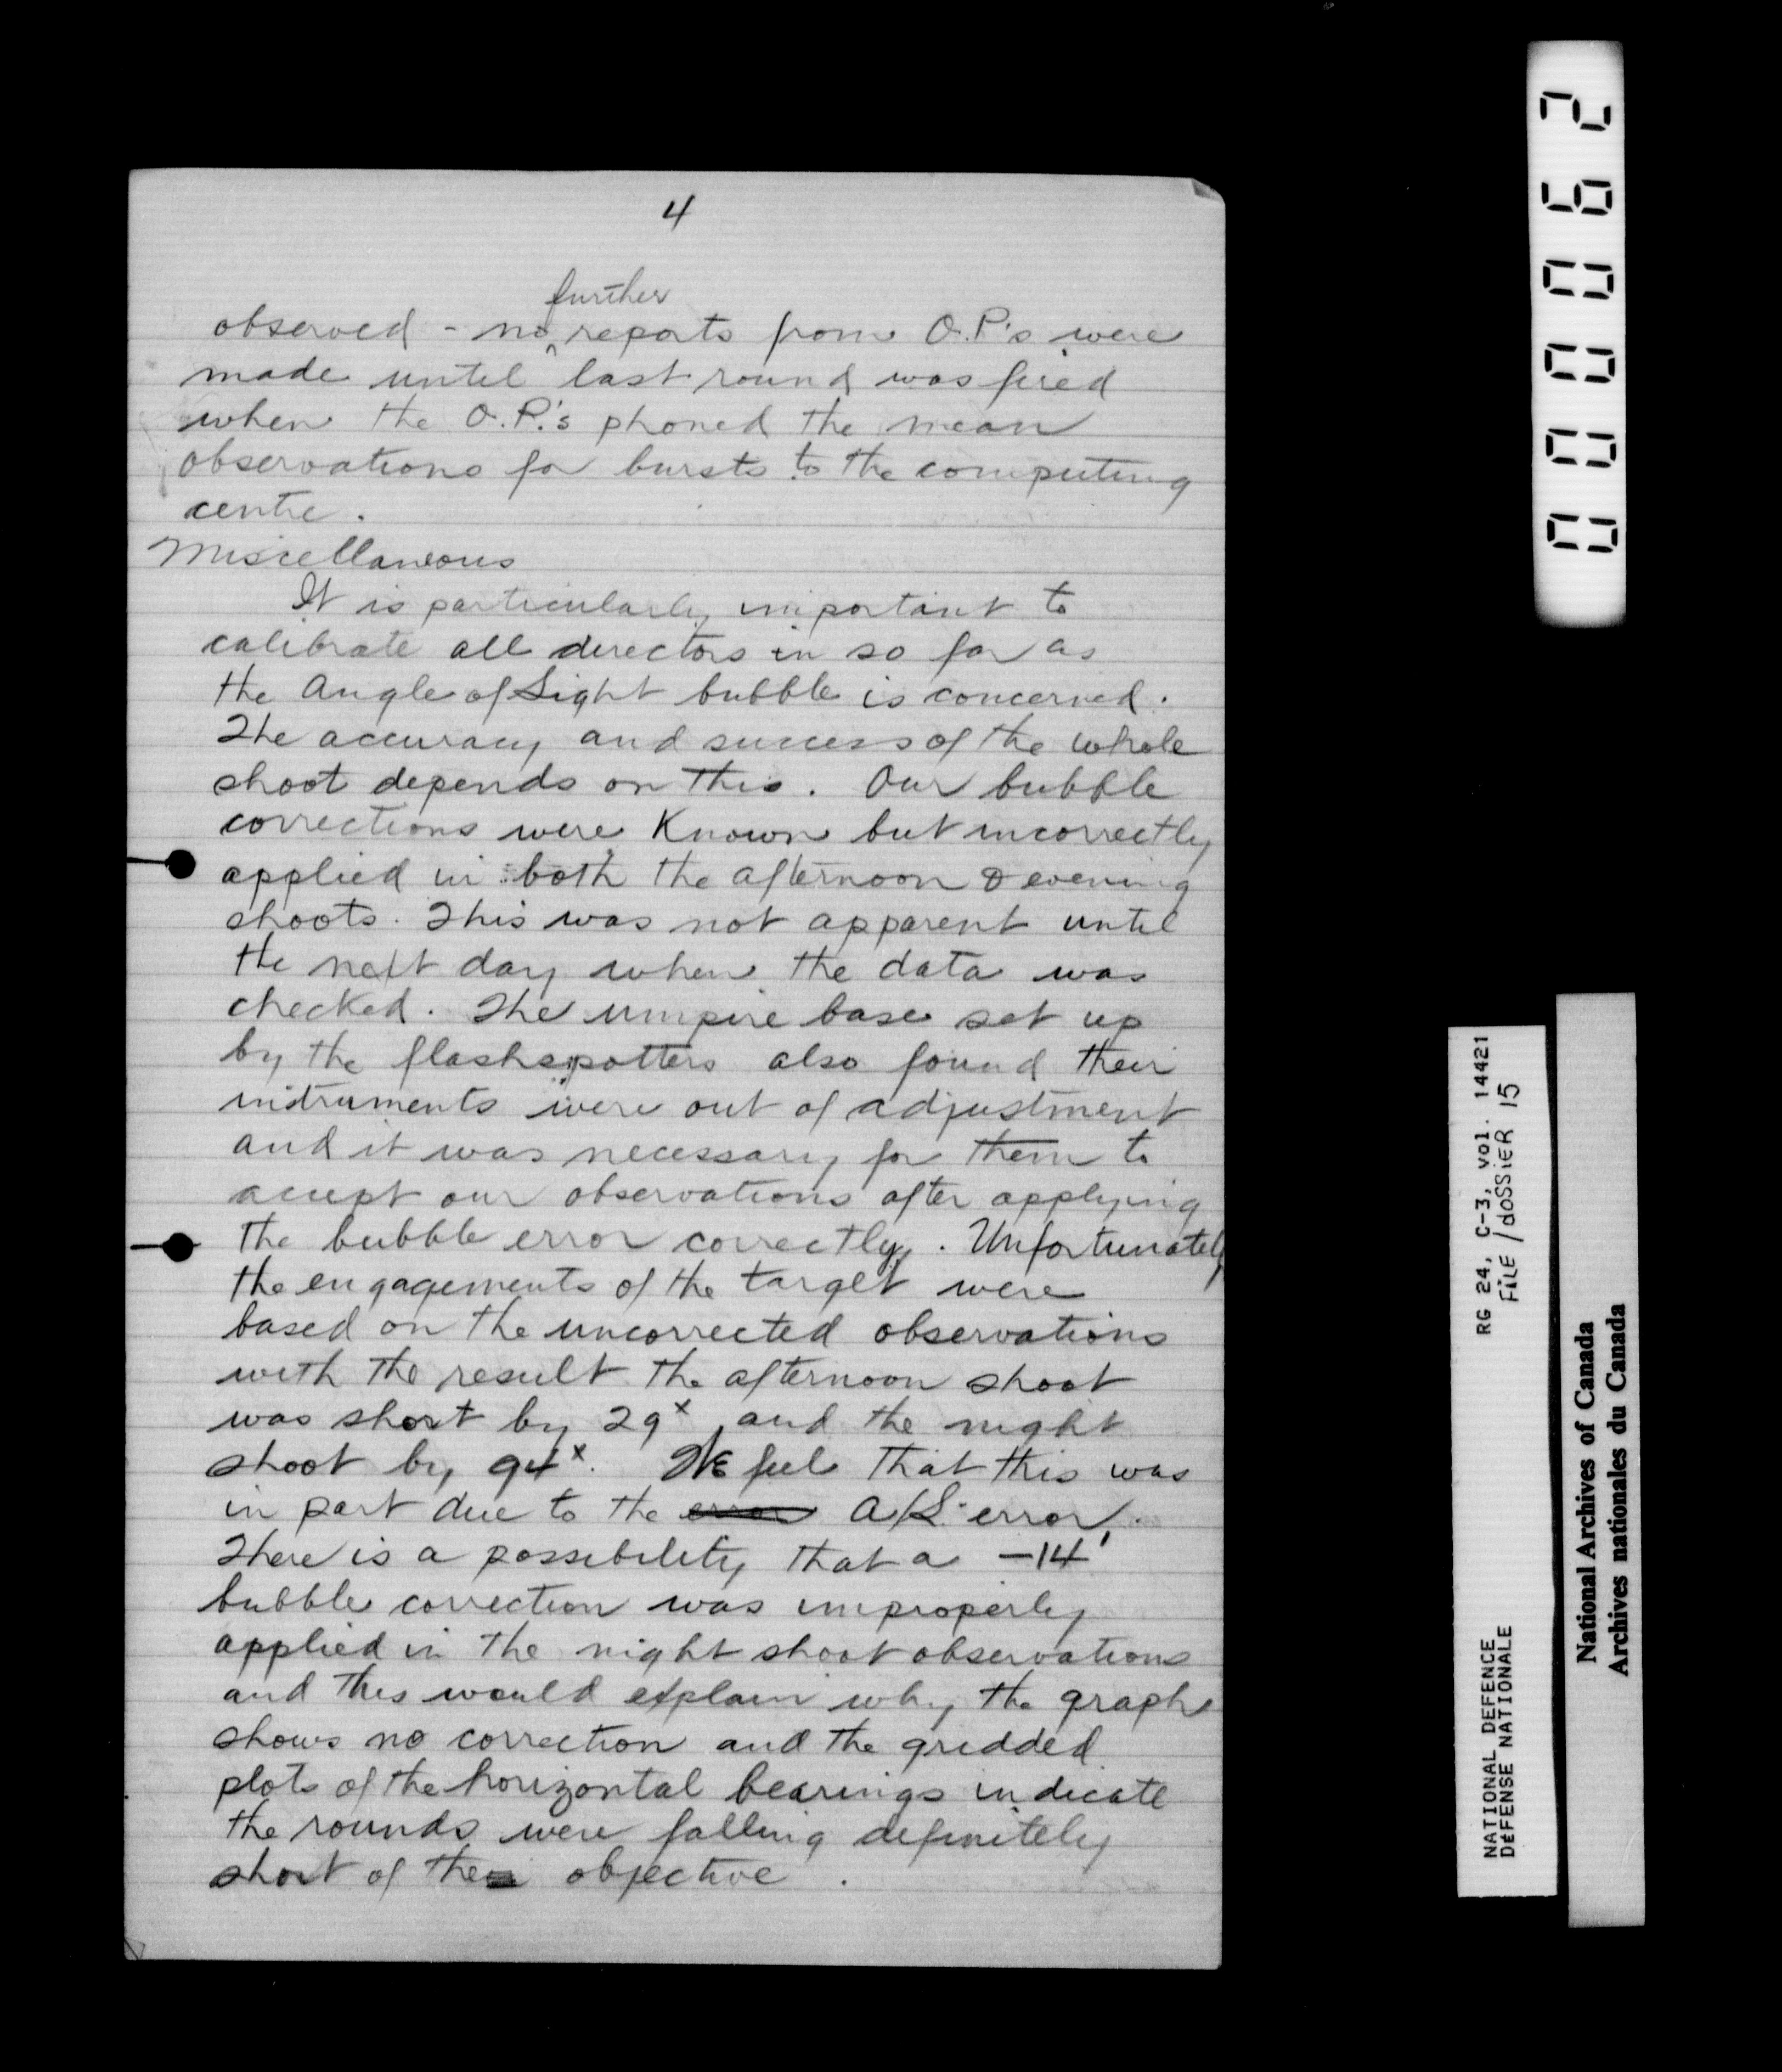 4
further
observed - no reports from O.P.'s were
made until last round was fired
when the O.P.'s phoned the mean
observations for bursts to the computing
centre.
Miscellaneous
It is particularly important to
calibrate all directors in so far as
the Angle of Sight bubble is concerned.
The accuracy and success of the whole
shoot depends on this. Our bubble
corrections were known but incorrectly
applied in both the afternoon & evening
shoots. This was not apparent until
the next day when the data was
checked. The umpire base set up
by the flashspotters also found their
instruments were out of adjustment
and it was necessary for them to
accept our observations after applying
the bubble error correctly. Unfortunately
the engagements of the target were
based on the uncorrected observations
with the result the afternoon shoot
was short by 29ˣ and the night
shoot by 94ˣ. We feel that this was
in part due to the error A/S error.
There is a possibility that a -14'
bubble correction was improperly
applied in the night shoot observations
and this would explain why the graph
shows no correction and the gridded
plots of the horizontal bearings indicate
the rounds were falling definitely
short of the objective.
000062
RG 24, C-3, vol. 14421
FILE/dOSSIER 15
NATIONAL DEFENCE
DÉFENSE NATIONALE
National Archives of Canada
Archives nationales du Canada